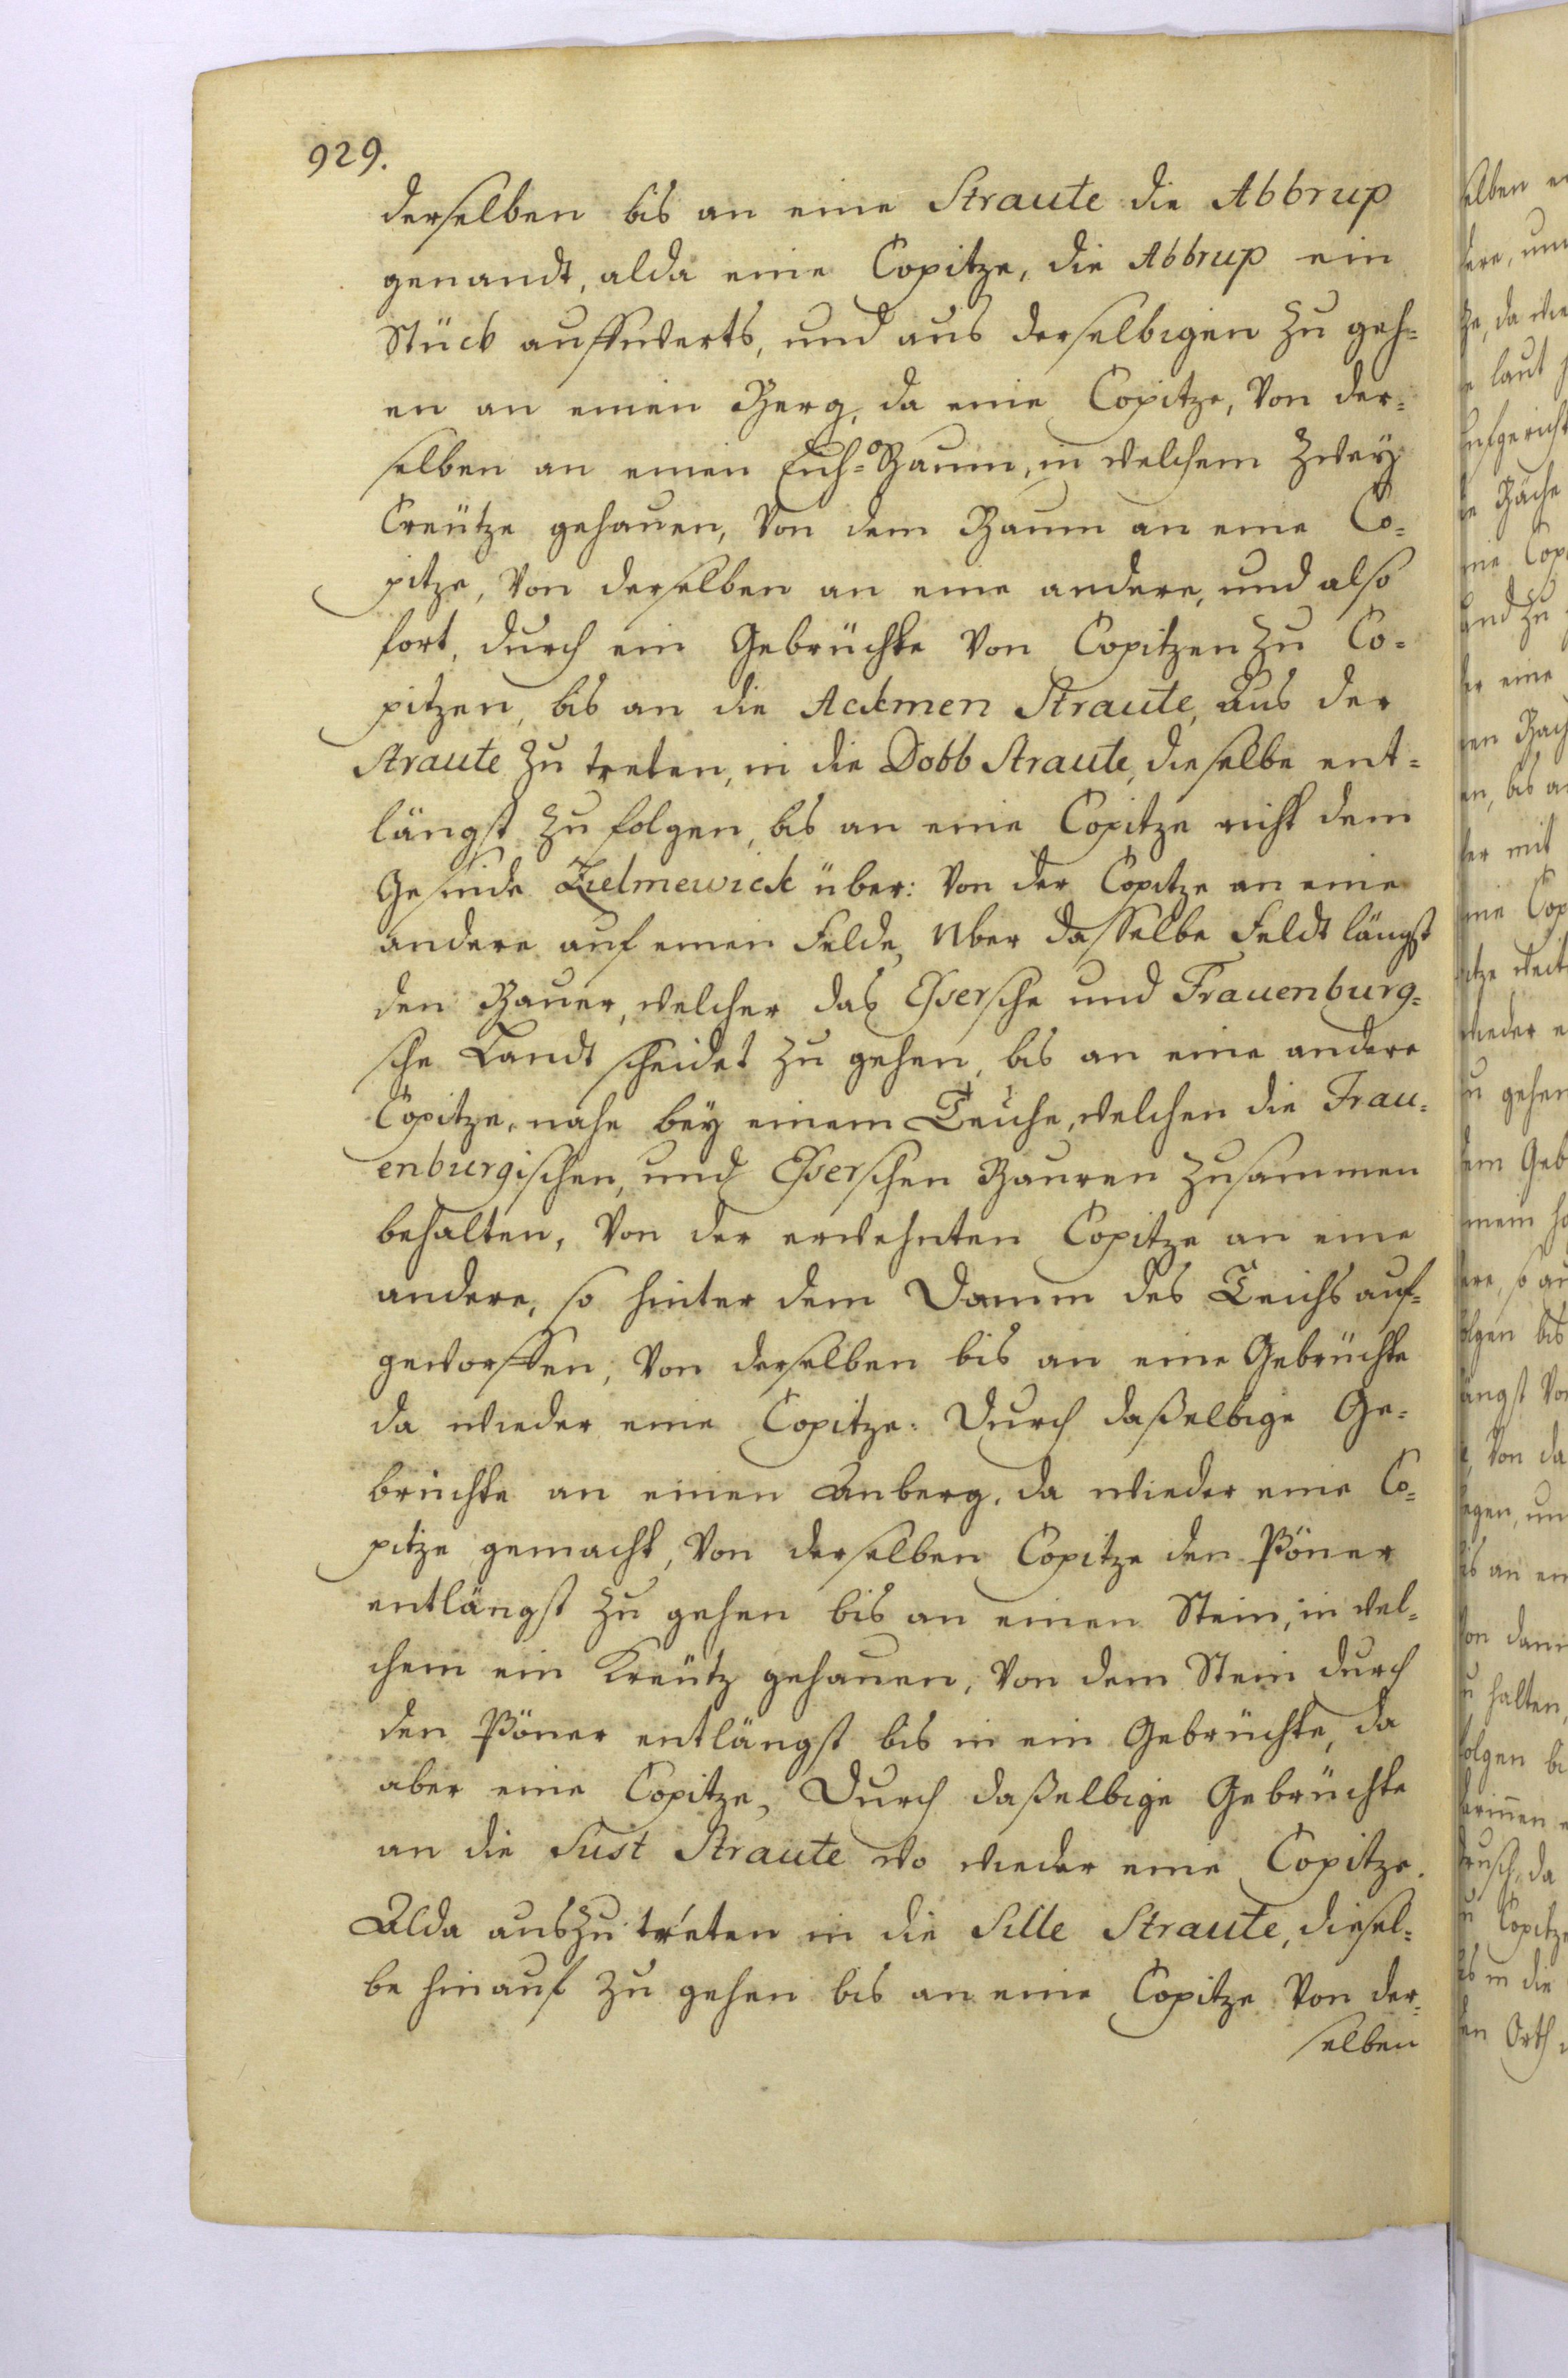 929.
derselben bis an eine Straute die Abbrup
genandt, alda eine Copitze, die Abbrup ein
Stück auffwerts, und aus derselbigen zu geh=
en an einen Berg, da eine Copitze, Von der=
selben an einen Eich=Baum, in welchem zwey
Creütze gehauen, Von dem Baum an eine Co=
pitze, Von derselben an eine andere, und also
fort, durch ein Gebrüchte Von Copitzen zu Co=
pitzen, bis an die Ackmen Straute, aus der
Straute zu treten, in die Dobb Straute, dieselbe ent=
längst zu folgen, bis an eine Copitze richt dem
Gesinde Zielmewick über: Von der Copitze an eine
andere auf einen Felde, Uber dasselbe Feldt längst
den Bauer, welcher das Essersche und Frauenburg=
sche Landt scheidet zu gehen, bis an eine andere
Copitze, nahe bey einem Teiche, welchen die Frau=
enburgischen, und Esserschen Bauren zusammen
behalten, Von der erwehnten Copitze an eine
andere, so hinter dem Damm des Teichs auf=
geworffen, Von derselben bis an eine Gebrüchte
da wieder eine Copitze. Durch daßelbige Ge=
brüchte an einen Anberg, da wieder eine Co=
pitze gemacht, Von derselben Copitze den Pöner
entlängst zu gehen bis an einen Stein, in wel=
chem ein Kreütz gehauen, Von dem Stein durch
den Pöner entlängst bis in ein Gebrüchte, da
aber eine Copitze, Durch daßelbige Gebrüchte
an die Sust Straute wo wieder eine Copitze.
Alda auszutreten in die Sille Straute, diesel=
be hinauf zu gehen bis an eine Copitze Von der=
selben